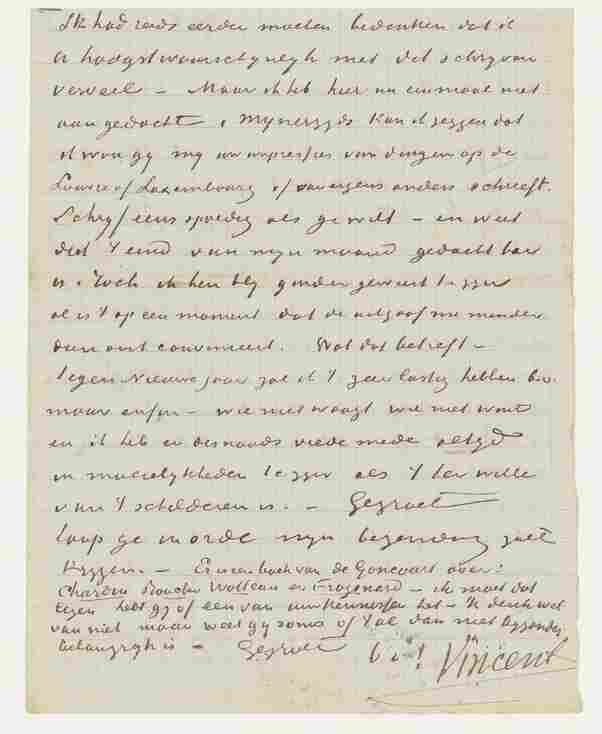 Ik had reeds eerder moeten bedenken dat il
er hoogstwaarschynlyk met dat schryven
verveel – Maar ik heb hier nu eenmaal niet
aan gedacht & mynerzyds kan ik zeggen dat
ik wou gy my uw impressies van dingen op de
Louvre of Luxembourg of overigens anders schreeft.
Schryf eens spoedig als ge wilt – en weet
dat 't eind van myn maand gedacht baar
is. Toch ik ben bly ginder geweest te zyn
al is 't op een moment dat de uitgaaf me minder
dan ooit convenieert. Wat dat betreft –
tegen Nieuwejaar zal ik 't zeer lastig hebben
maar enfin – wie niet waagt wie niet wint
en ik heb er desnoods vrede mede altyd
in moeielykheden te zyn als 't ter wille
van 't schilderen is. – Gegroet
loop ge in orde myn bezending zult
krygen. – Er is een boek van de Goncourt over:
Chardin Boucher Watteau en Fragonard – ik moet dat
lezen hebt gy of een van uw kennissen het – Ik denk wel
van niet maar weet gy soms of 't al dan niet byzonder
belangryk is – Gegroet b. à t. Vincent